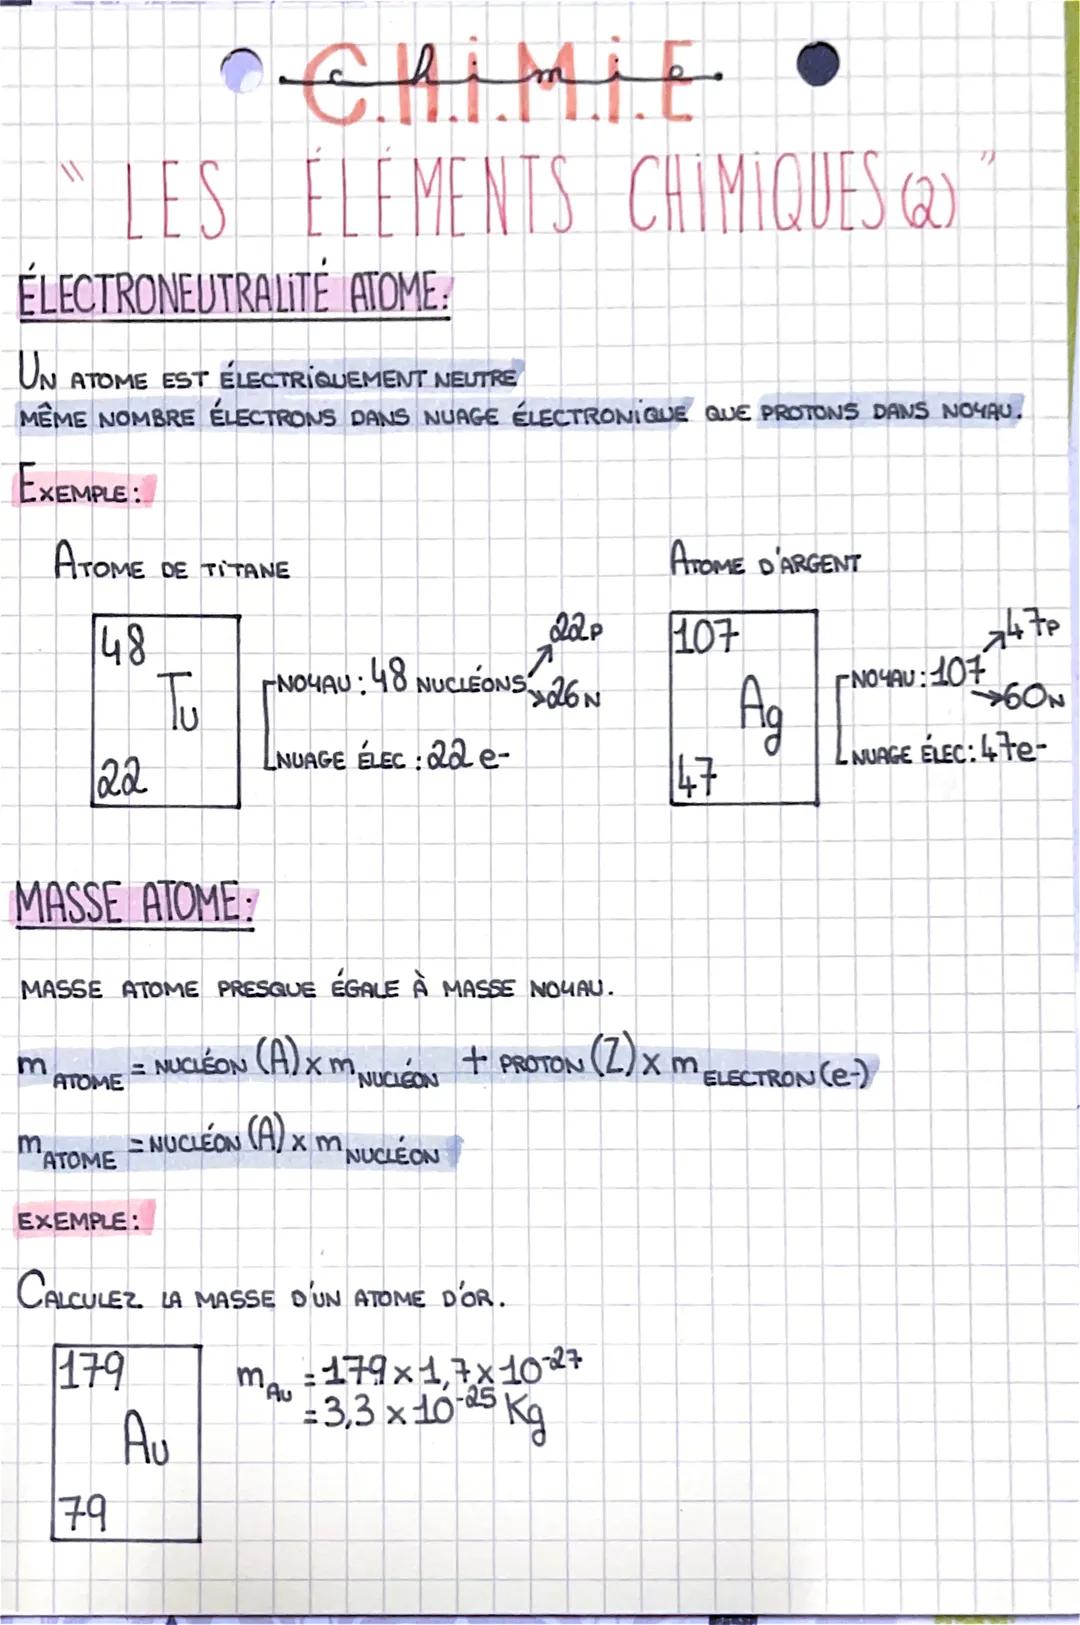 C.H.i.M.i.E
chimie
" LES ÉLÉMENTS CHIMiQUES (2) "
ÉLECTRONEUTRALiTÉ ATOME:
UN ATOME EST ÉLECTRiQUEMENT NEUTRE
MÊME NOMBRE ÉLECTRONS DANS NUAGE ÉLECTRONiQUE QUE PROTONS DANS NOYAU.
EXEMPLE:
ATOME DE TiTANE
48
Tu
22
NOYAU: 48 NUCLÉONS
22P
26N
NUAGE ÉLEC: 22 e-
ATOME D'ARGENT
107
Ag
47
NOYAU: 107
47P
60N
NUAGE ÉLEC: 47e-
MASSE ATOME:
MASSE ATOME PRESQUE ÉGALE À MASSE NOYAU.
m ATOME = NUCLÉON (A) x m NUCLÉON + PROTON (Z) x m ELECTRON (e-)
m ATOME = NUCLÉON (A) x m NUCLÉON
EXEMPLE:
CALCULEZ LA MASSE D'UN ATOME D'OR.
179
Au
79
m Au = 179 x 1,7 x 10-27
= 3,3 x 10-25 Kg